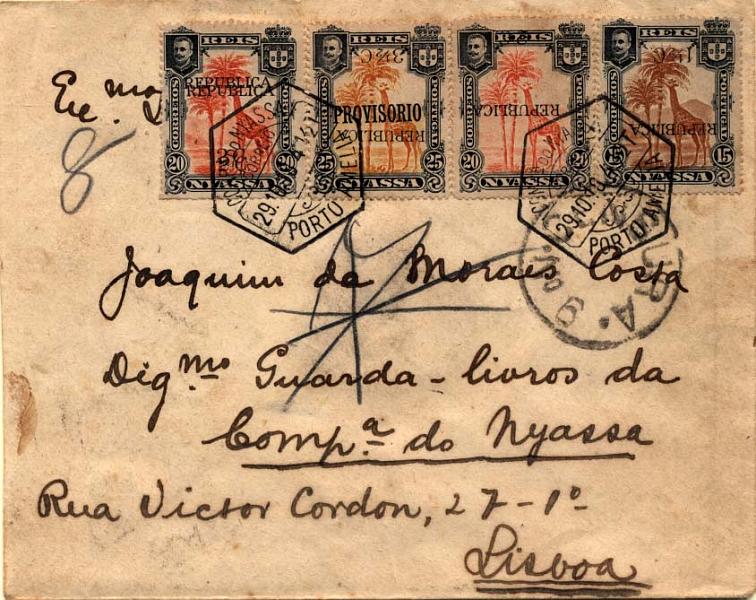 REIS REIS REIS REIS
CORREIOS CORREIOS
REPUBLICA
REPUBLICA
3½ C
1½ C
PROVISORIO
REPUBLICA REPUBLICA REPUBLICA
20 20 25 25 20 20 15 15
NYASSA NYASSA NYASSA NYASSA
29.10
PORTO AMELIA
29.10
PORTO AMELIA
Exc. mo
8
Joaquim da Moraes Costa
Dig.mo Guarda-livros da
Comp.a do Nyassa
Rua Victor Cordon, 27-1º
Lisboa